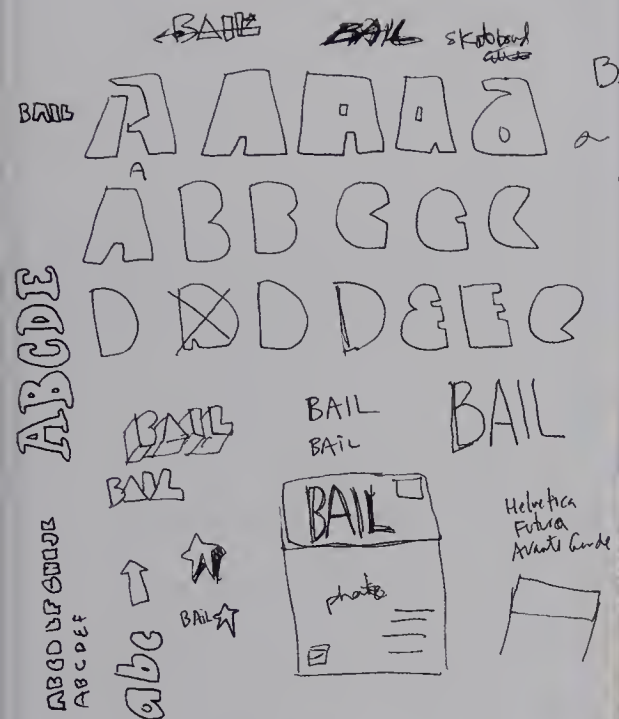 BAIL BAIL skateboard
B
BAIL
A A A A a
a
A
A B B C C C
D D D D E E C
ABCDE
BAIL
BAIL
BAIL
BAIL
BAIL
BAIL
photo
Helvetica
Futura
Avante Garde
BAIL
ABCDEFGHIJK
ABCDEF
abc